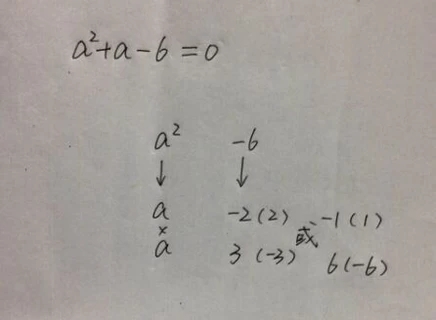 a²+a-6=0
a² -6
↓ ↓
a -2(2) 或 -1(1)
×
a 3(-3) 6(-6)